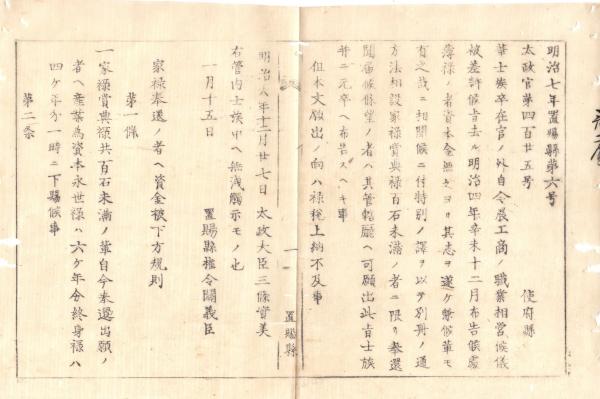 明治七年置賜縣第六号
太政官第四百廿五号
使府縣
華士族卒在官ノ外自今農工商ノ職業相営候儀
被差許候旨去ル明治四年辛未十二月布告候處
薄禄ノ者資本金無之ヨリ其志ヲ遂ケ兼候輩モ
有之哉ニ相聞候ニ付特別ノ譯ヲ以テ別冊ノ通
方法相設家禄賞典禄百石未満ノ者ニ限リ奉還
聞届候條望ノ者ハ其管轄廳ヘ可願出此旨士族
并ニ元卒ヘ布告スヘキ事
但本文願出ノ向ハ禄税上納不及事
明治六年十二月廿七日 太政大臣三條實美
右管内士族中ヘ無洩觸示モノ也
一月十五日 置賜縣権令關義臣
一 置賜縣
家禄奉還ノ者ヘ資金被下方規則
第一條
一家禄賞典禄共百石未満ノ輩自今奉還出願ノ
者ヘ産業為資本永世禄ハ六ケ年分終身禄ハ
四ケ年分一時ニ下賜候事
第二条